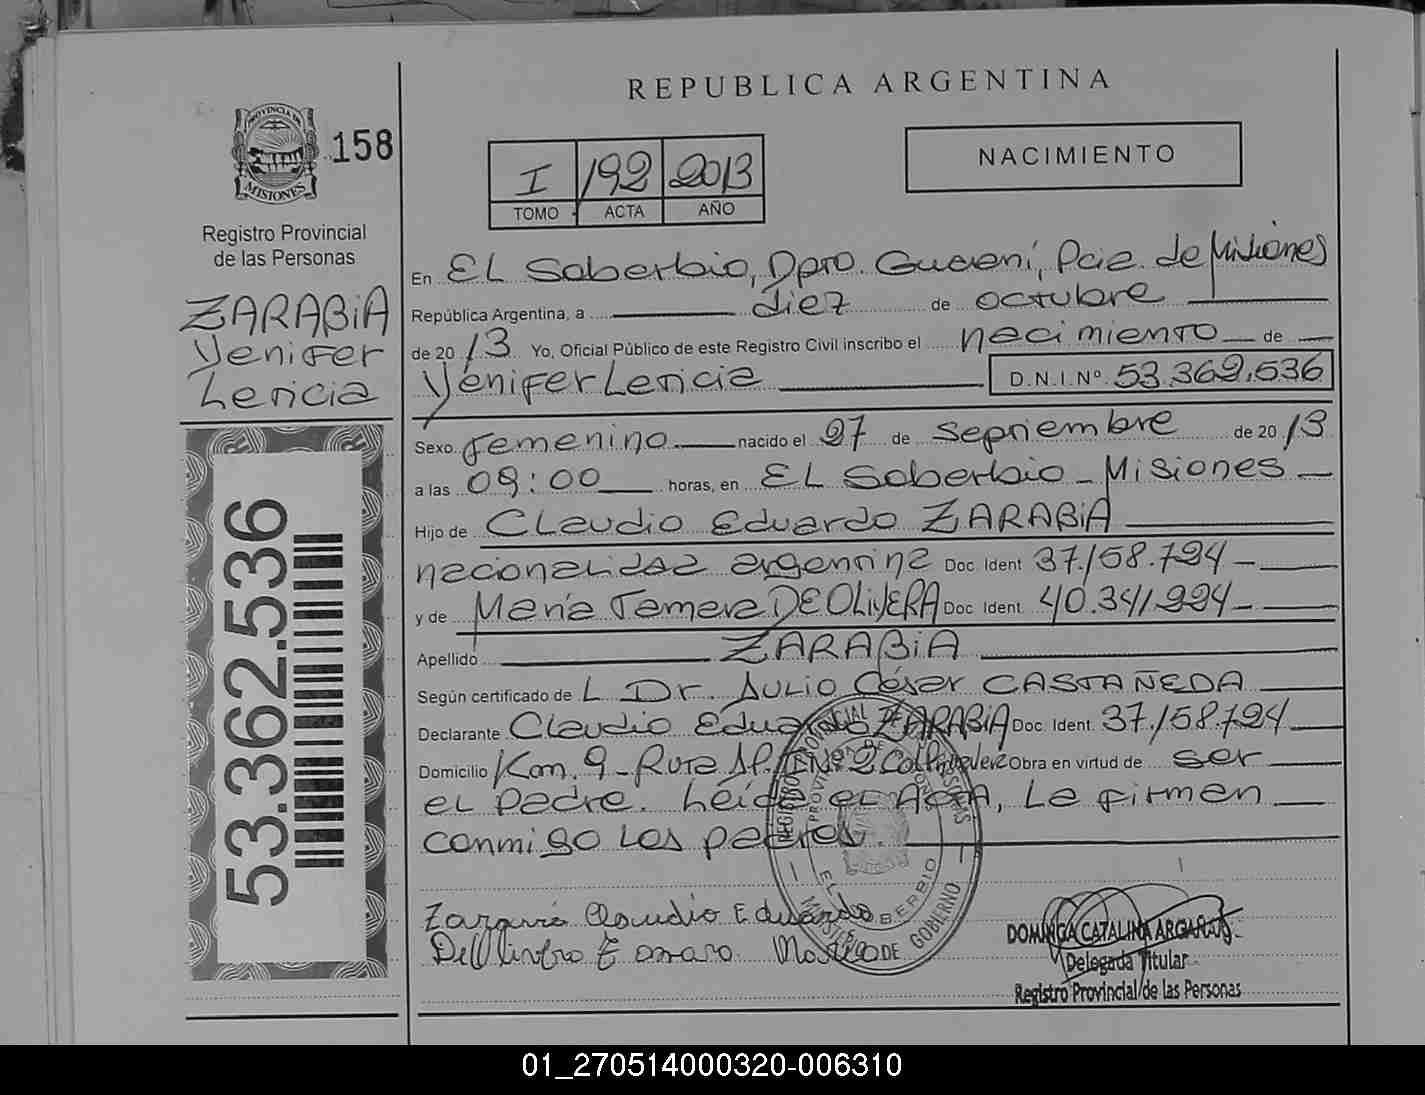 REPUBLICA ARGENTINA
PROVINCIA DE
MISIONES
158
Registro Provincial
de las Personas
ZARABIA
Yenifer
Leticia
53.362.536
I 192 2013
TOMO ACTA AÑO
NACIMIENTO
En El Soberbio, Dpto. Guaraní, Pcia. de Misiones
República Argentina, a diez de octubre
de 2013 Yo, Oficial Público de este Registro Civil inscribo el nacimiento de
Yenifer Leticia D.N.I. Nº 53.362.536
Sexo femenino nacido el 27 de septiembre de 2013
a las 09:00 horas, en El Soberbio - Misiones
Hijo de Claudio Eduardo ZARABIA
nacionalidad argentina Doc. Ident 37.158.724
y de María Tamara DE OLIVERA Doc. Ident. 40.341.224
Apellido ZARABIA
Según certificado de L Dr. Julio César CASTAÑEDA
Declarante Claudio Eduardo ZARABIA Doc. Ident. 37.158.724
Domicilio Km. 9 - Ruta Nº 2 Obra en virtud de ser
el padre. Leída el Acta, la firman
conmigo los padres.
REGISTRO PROVINCIAL DE LAS PERSONAS
PROVINCIA DE MISIONES
EL SOBERBIO
MINISTERIO DE GOBIERNO
Claudio Eduardo
DOMINGA CATALINA ARGARAS
Delegada Titular
Registro Provincial de las Personas
01_270514000320-006310